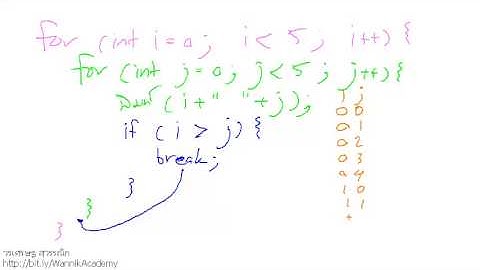 for (int i=0; i<5; i++) {
for (int j=0; j<5; j++) {
พิมพ์ (i+" "+j);
if (i > j) {
break;
}
}
}
i j
0 0
0 1
0 2
0 3
0 4
1 0
1 1
http://bit.ly/WannikAcademy